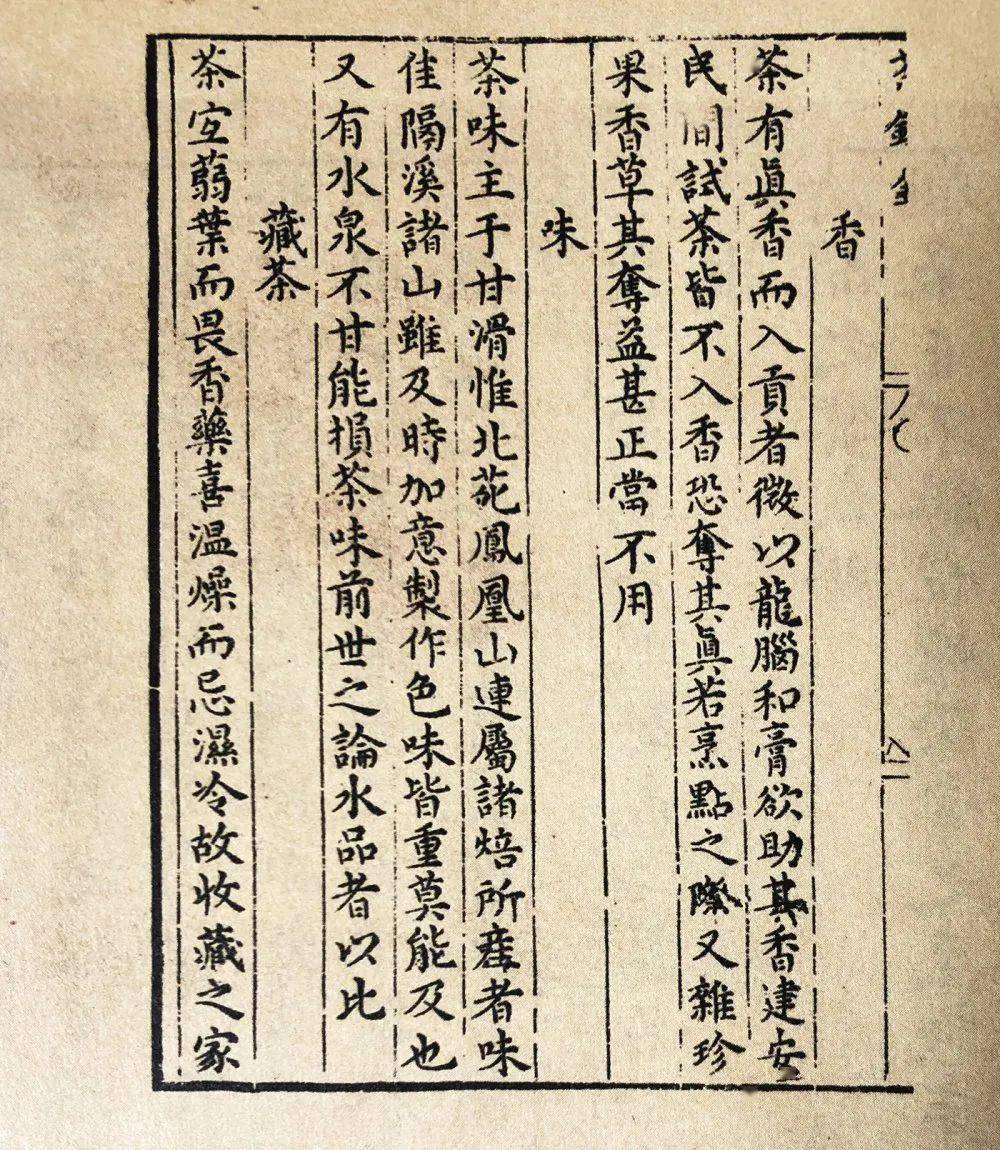 香
茶有眞香而入貢者微以龍腦和膏欲助其香建安
民間試茶皆不入香恐奪其眞若烹點之際又雜珍
果香草其奪益甚正當不用
味
茶味主于甘滑惟北苑鳳凰山連屬諸焙所產者味
佳隔溪諸山雖及時加意製作色味皆重莫能及也
又有水泉不甘能損茶味前世之論水品者以比
藏茶
茶宜蒻葉而畏香藥喜温燥而忌濕冷故收藏之家